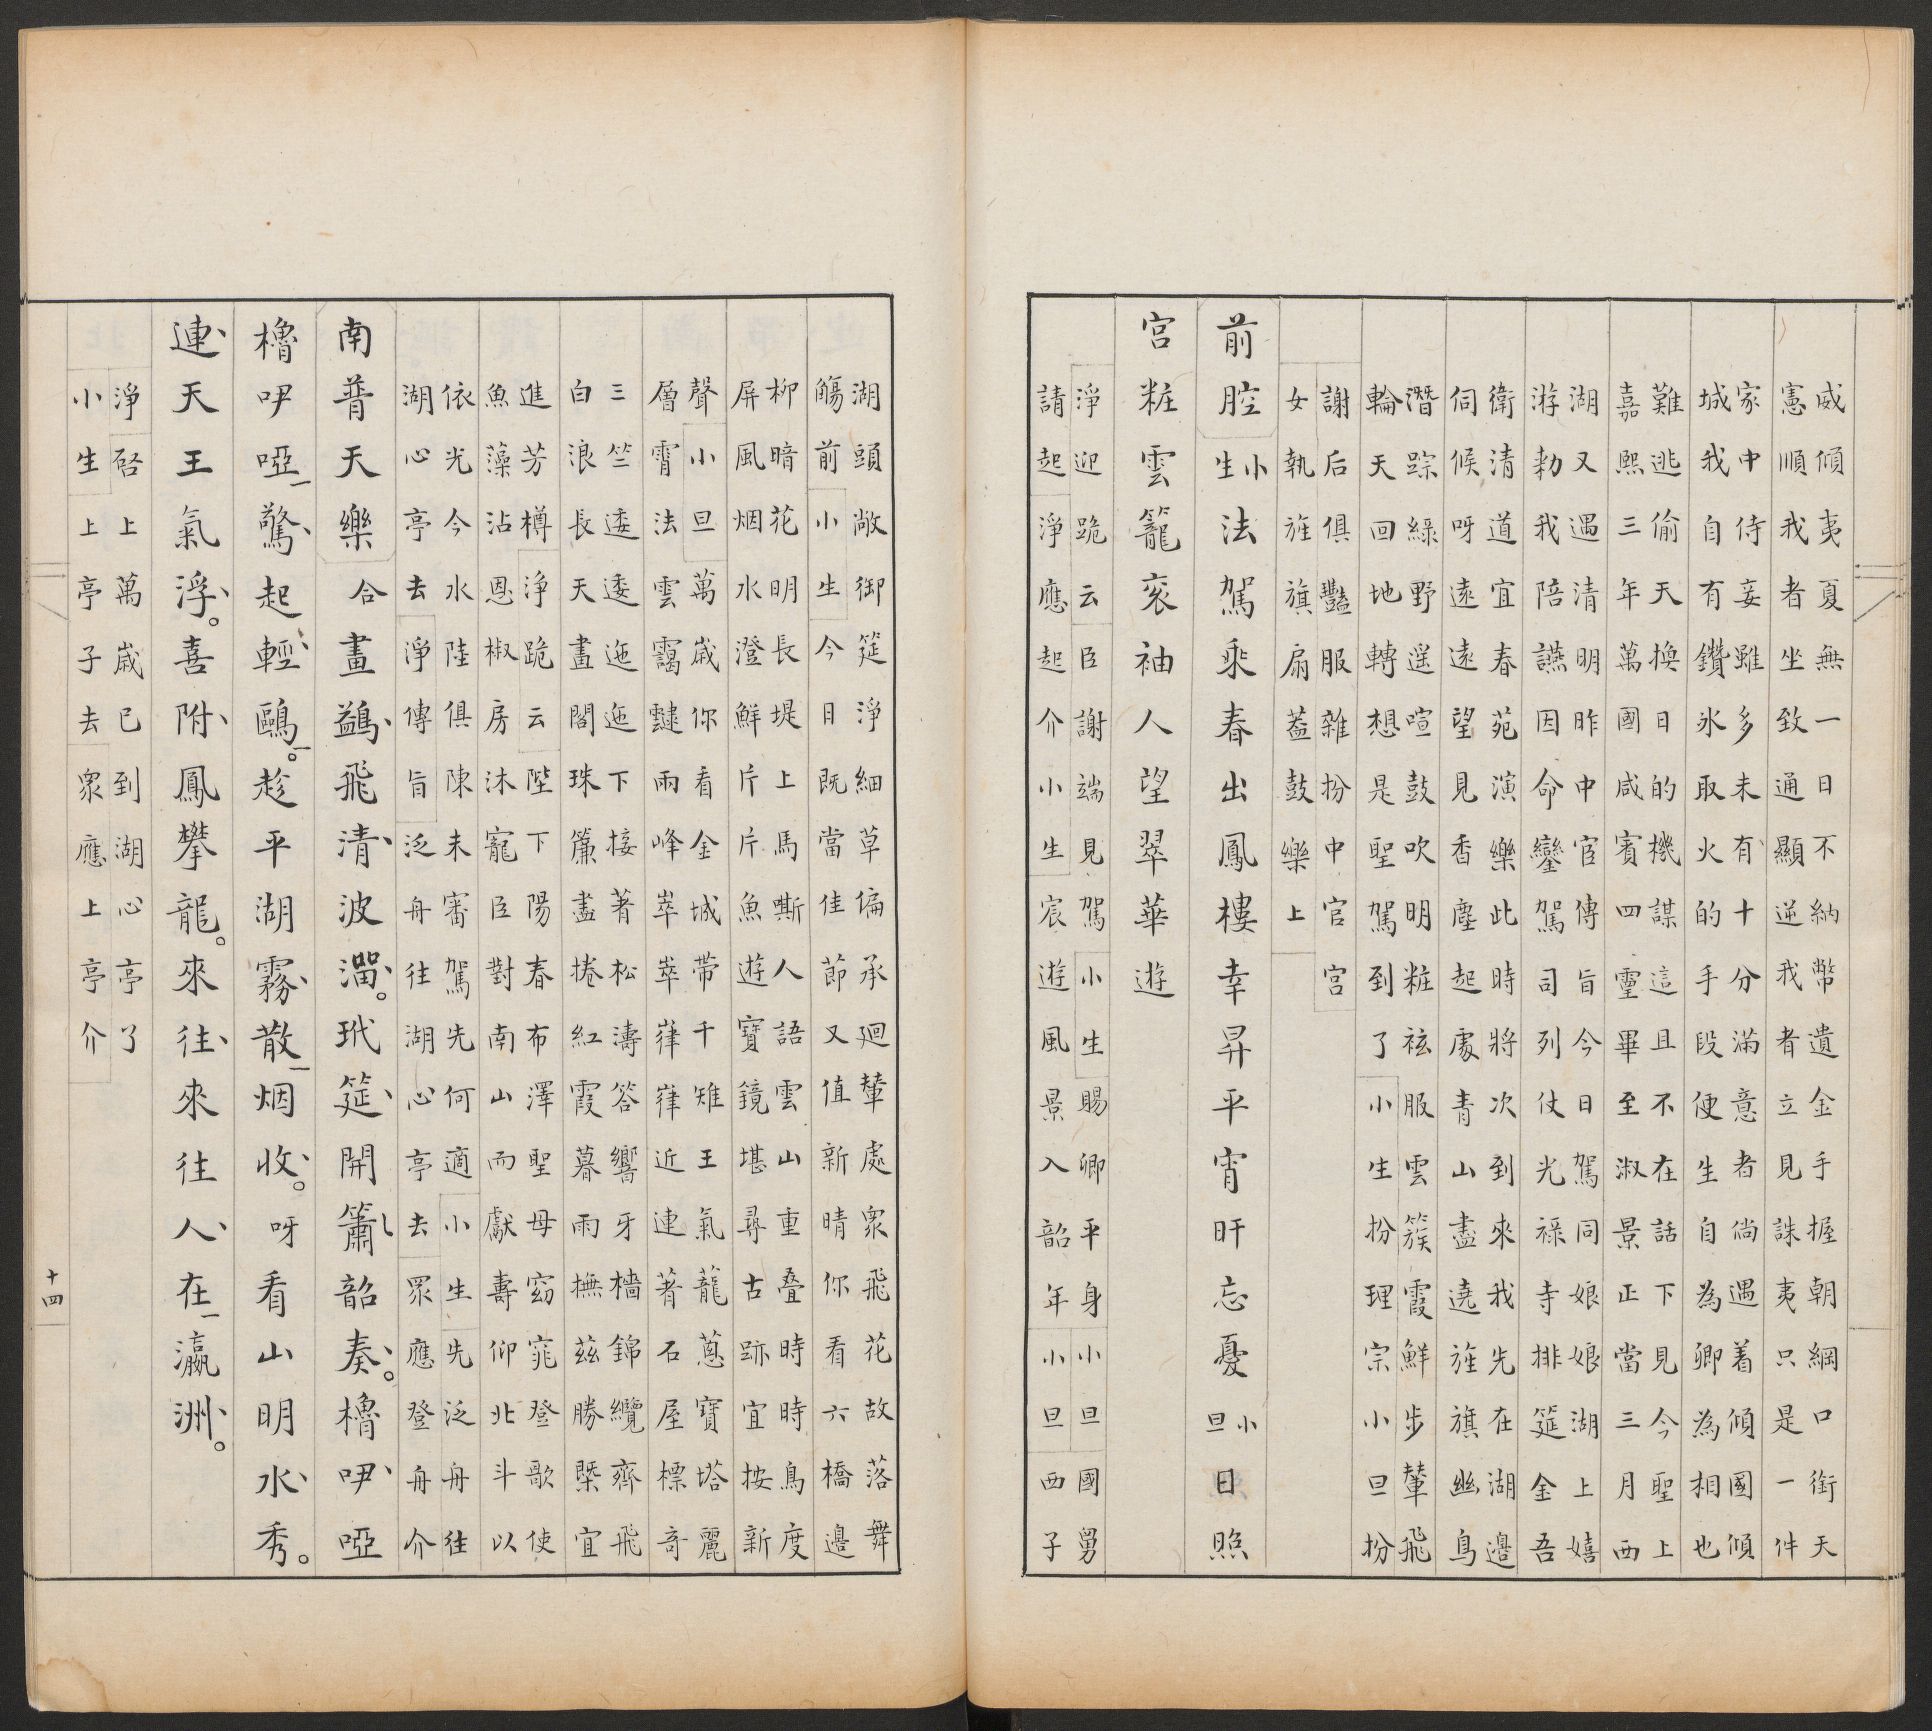 威傾夷夏無一日不納幣遺金手握朝綱口銜天
憲順我者坐致通顯逆我者立見誅夷只是一件
家中侍妾雖多未有十分滿意者倘遇着傾國傾
城我自有鑽氷取火的手段便生自為卿為相也
難逃偷天換日的機謀這且不在話下見今聖上
嘉熙三年萬國咸賓四靈畢至淑景正當三月西
湖又遇清明昨中官傳旨今日駕同娘娘湖上嬉
游勑我陪讌因命鑾駕司列仗光祿寺排筵金吾
衛清道宜春苑演樂此時將次到來我先在湖邊
伺候呀遠遠望見香塵起處青山盡遶旌旗幽鳥
潛踪綠野遥喧鼓吹明粧袨服雲簇霞鮮步輦飛
輪天回地轉想是聖駕到了小生扮理宗小旦扮
謝后俱豔服雜扮中官宮
女執旌旗扇蓋鼓樂上
前腔小生法駕乘春出鳳樓幸昇平宵旰忘憂小旦日照
宮粧雲籠衮袖人望翠華遊
淨迎跪云臣謝端見駕小生賜卿平身小旦國舅
請起淨應起介小生宸遊風景入韶年小旦西子
湖頭敞御筵淨細草偏承廻輦處衆飛花故落舞
觴前小生今日既當佳節又值新晴你看六橋邊
柳暗花明長堤上馬嘶人語雲山重叠時時鳥度
屏風烟水澄鮮片片魚遊寶鏡堪尋古跡宜按新
聲小旦萬歲你看金城帶千雉王氣蘢蔥寶塔麗
層霄法雲靄靆雨峰崒崒嵂嵂近連著石屋標奇
三竺逶逶迤迤下接著松濤答響牙檣錦纜齊飛
白浪長天畫閣珠簾盡捲紅霞暮雨撫茲勝槩宜
進芳樽淨跪云陛下陽春布澤聖母窈窕登歌使
魚藻沾恩椒房沐寵臣對南山而獻壽仰北斗以
依光今水陸俱陳未審駕先何適小生先泛舟往
湖心亭去淨傳旨泛舟往湖心亭去眾應登舟介
南普天樂合畫鷁飛清波溜玳筵開簫韶奏櫓咿啞
櫓咿啞驚起輕鷗趁平湖霧散烟收呀看山明水秀
連天王氣浮喜附鳳攀龍來往來往人在瀛洲
淨啓上萬歲已到湖心亭了
小生上亭子去衆應上亭介
十四